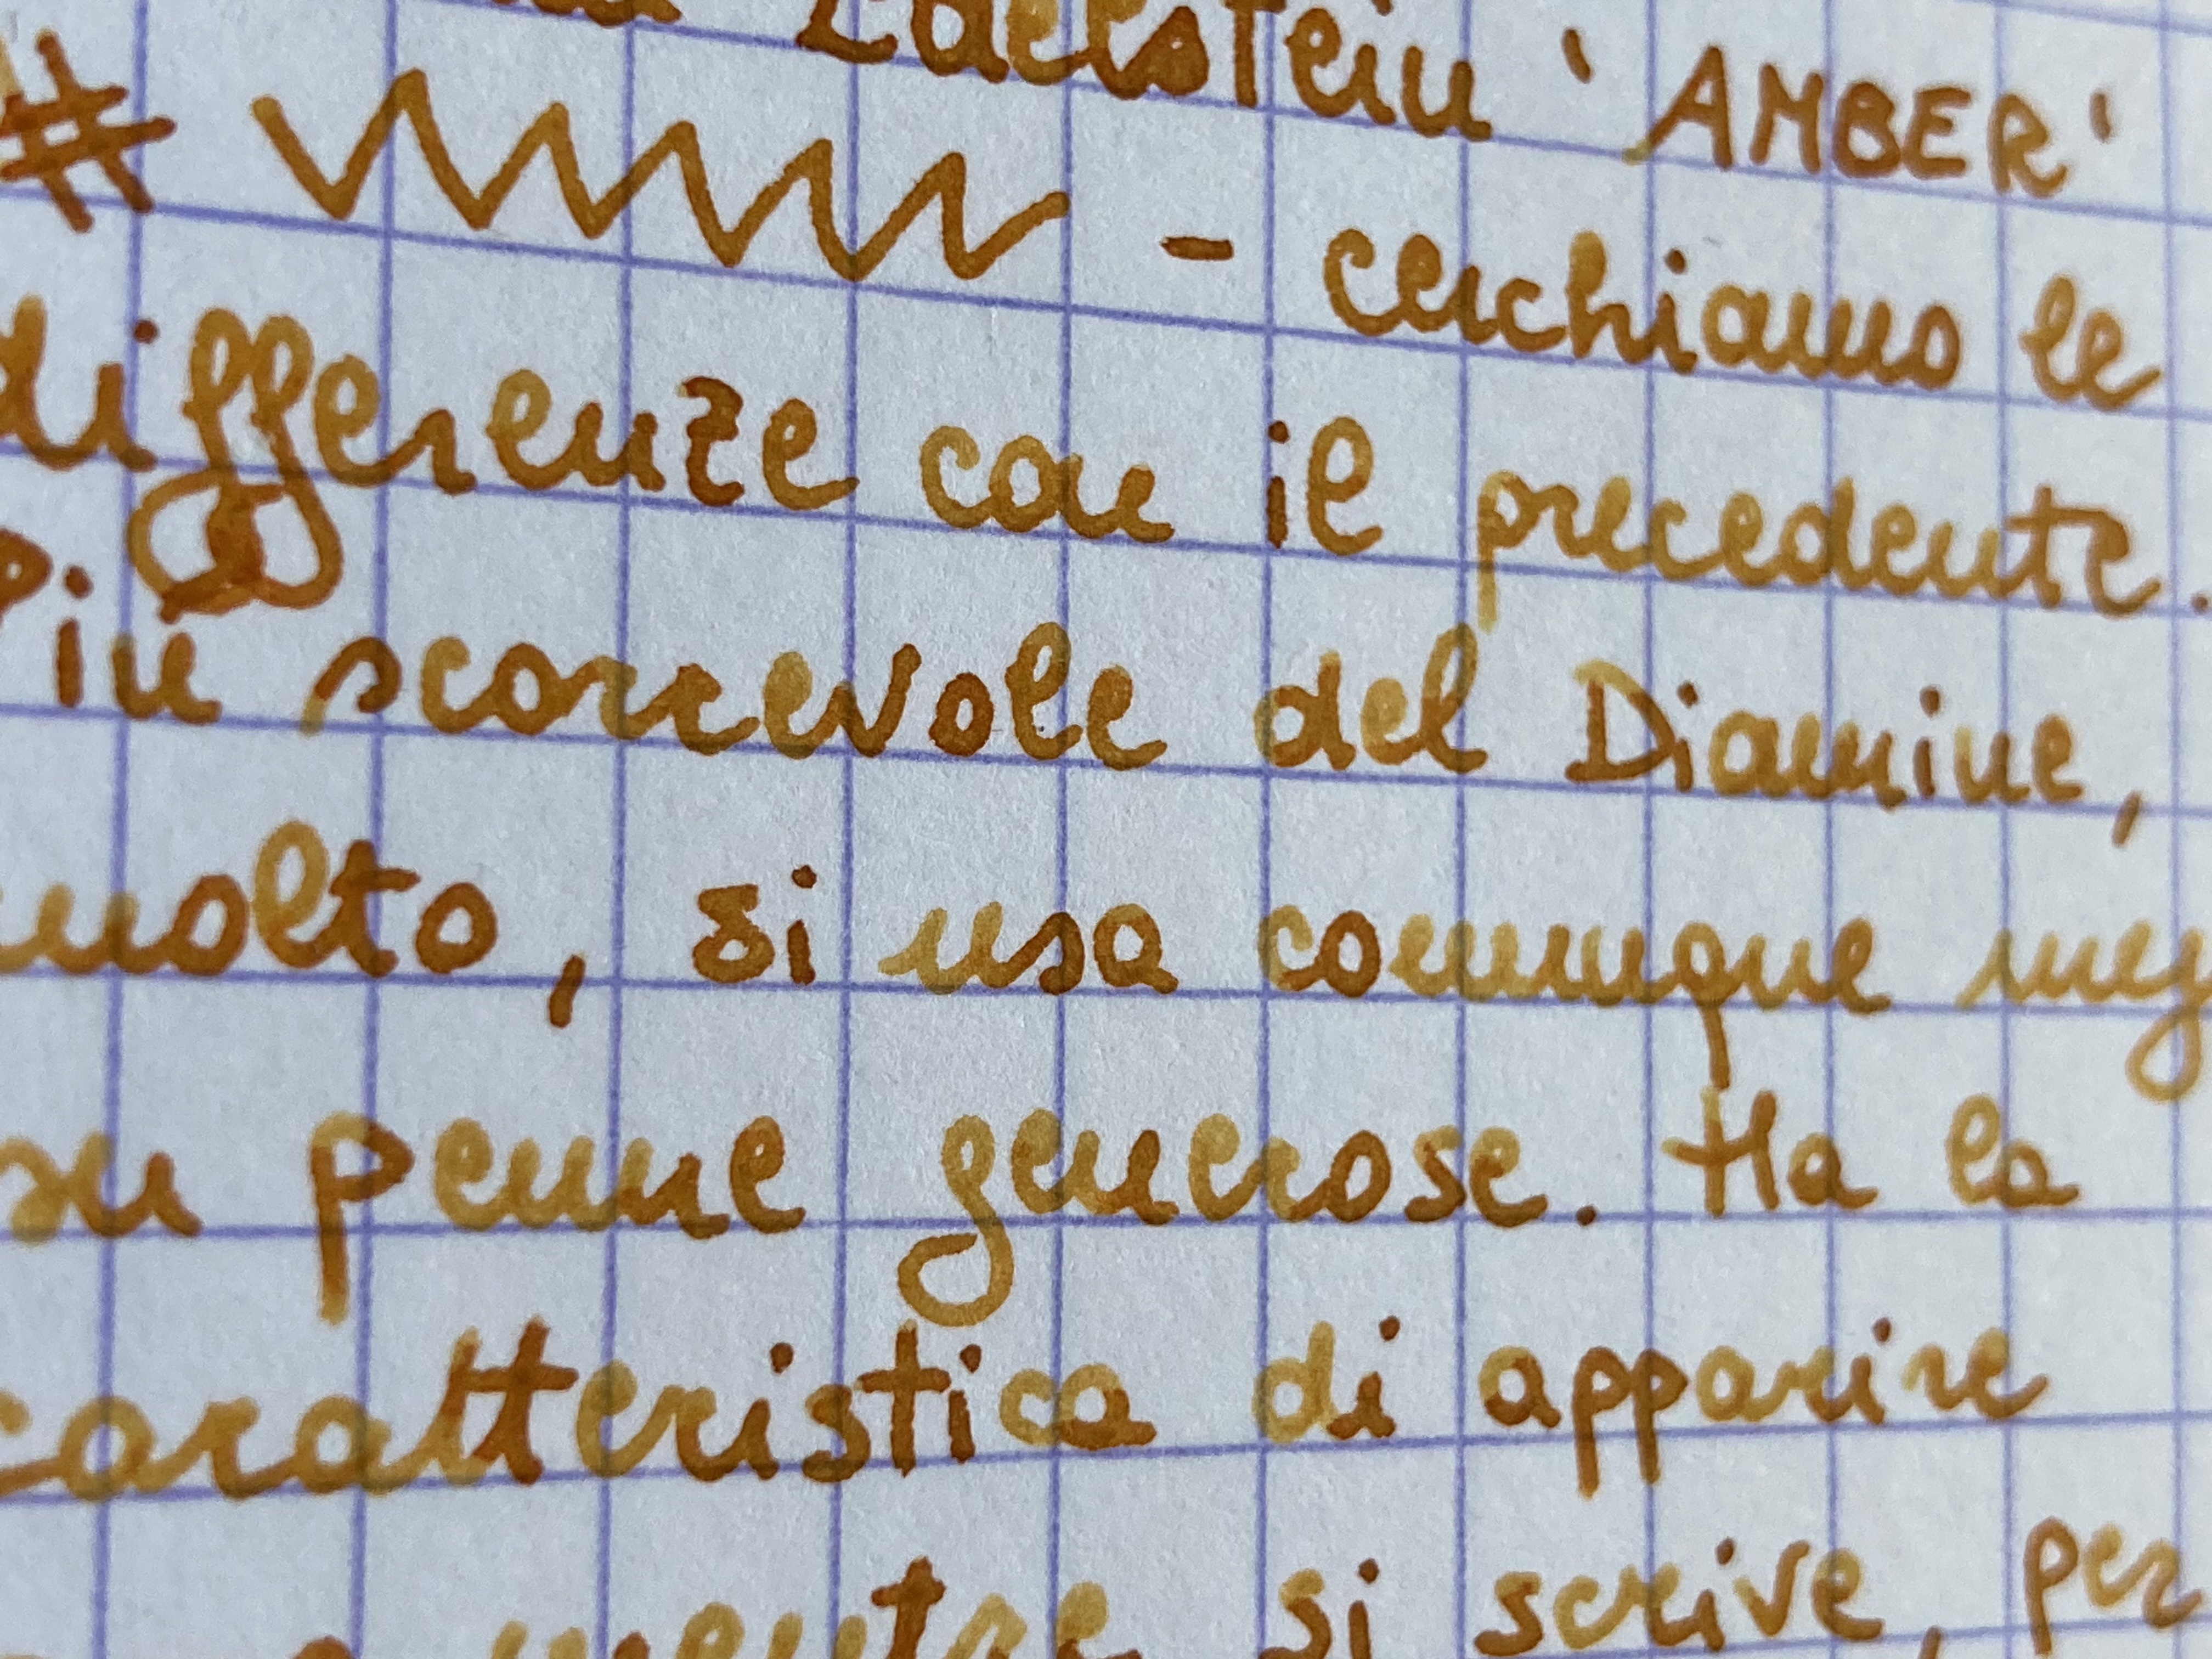 Edelstein 'AMBER'
# - cerchiamo le
differenze con il precedente.
Più scorrevole del Diamine,
molto, si usa comunque meg
su penne generose. Ha la
caratteristica di apparire
mentre si scrive, per